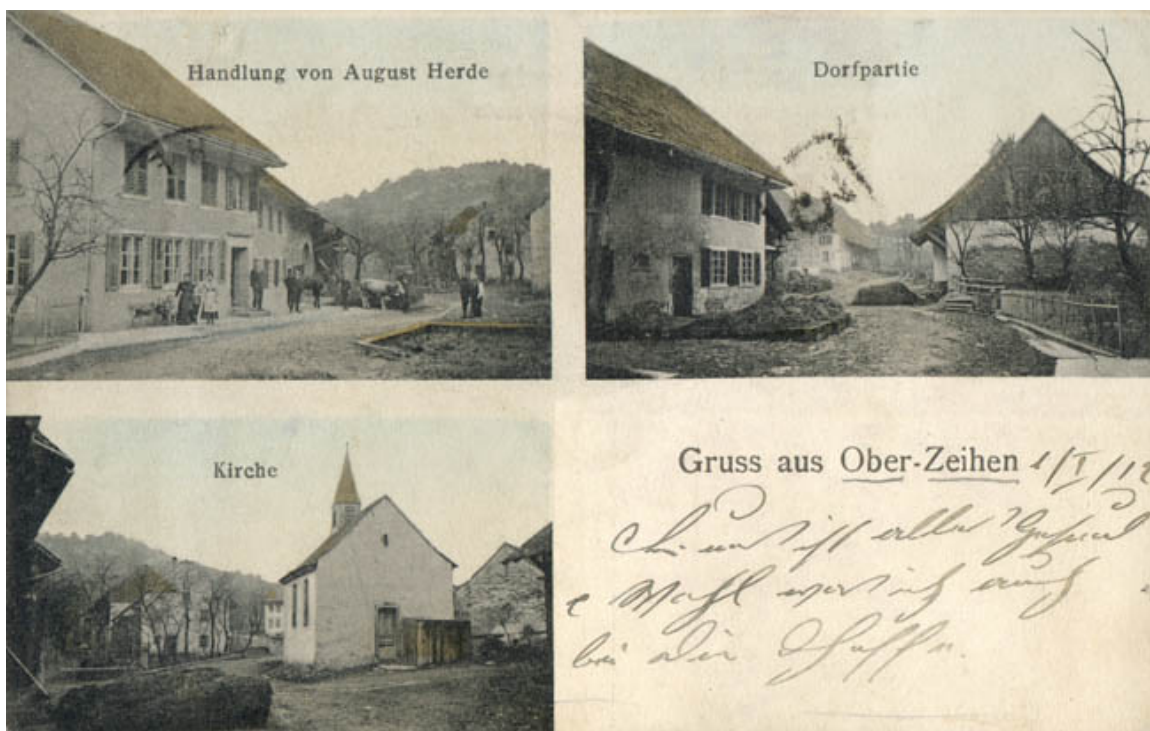 Handlung von August Herde
Dorfpartie
Kirche
Gruss aus Ober-Zeihen 1/I/12
uns ist alles Gesund
Wohl was ich auch
bei Dir hoffe.